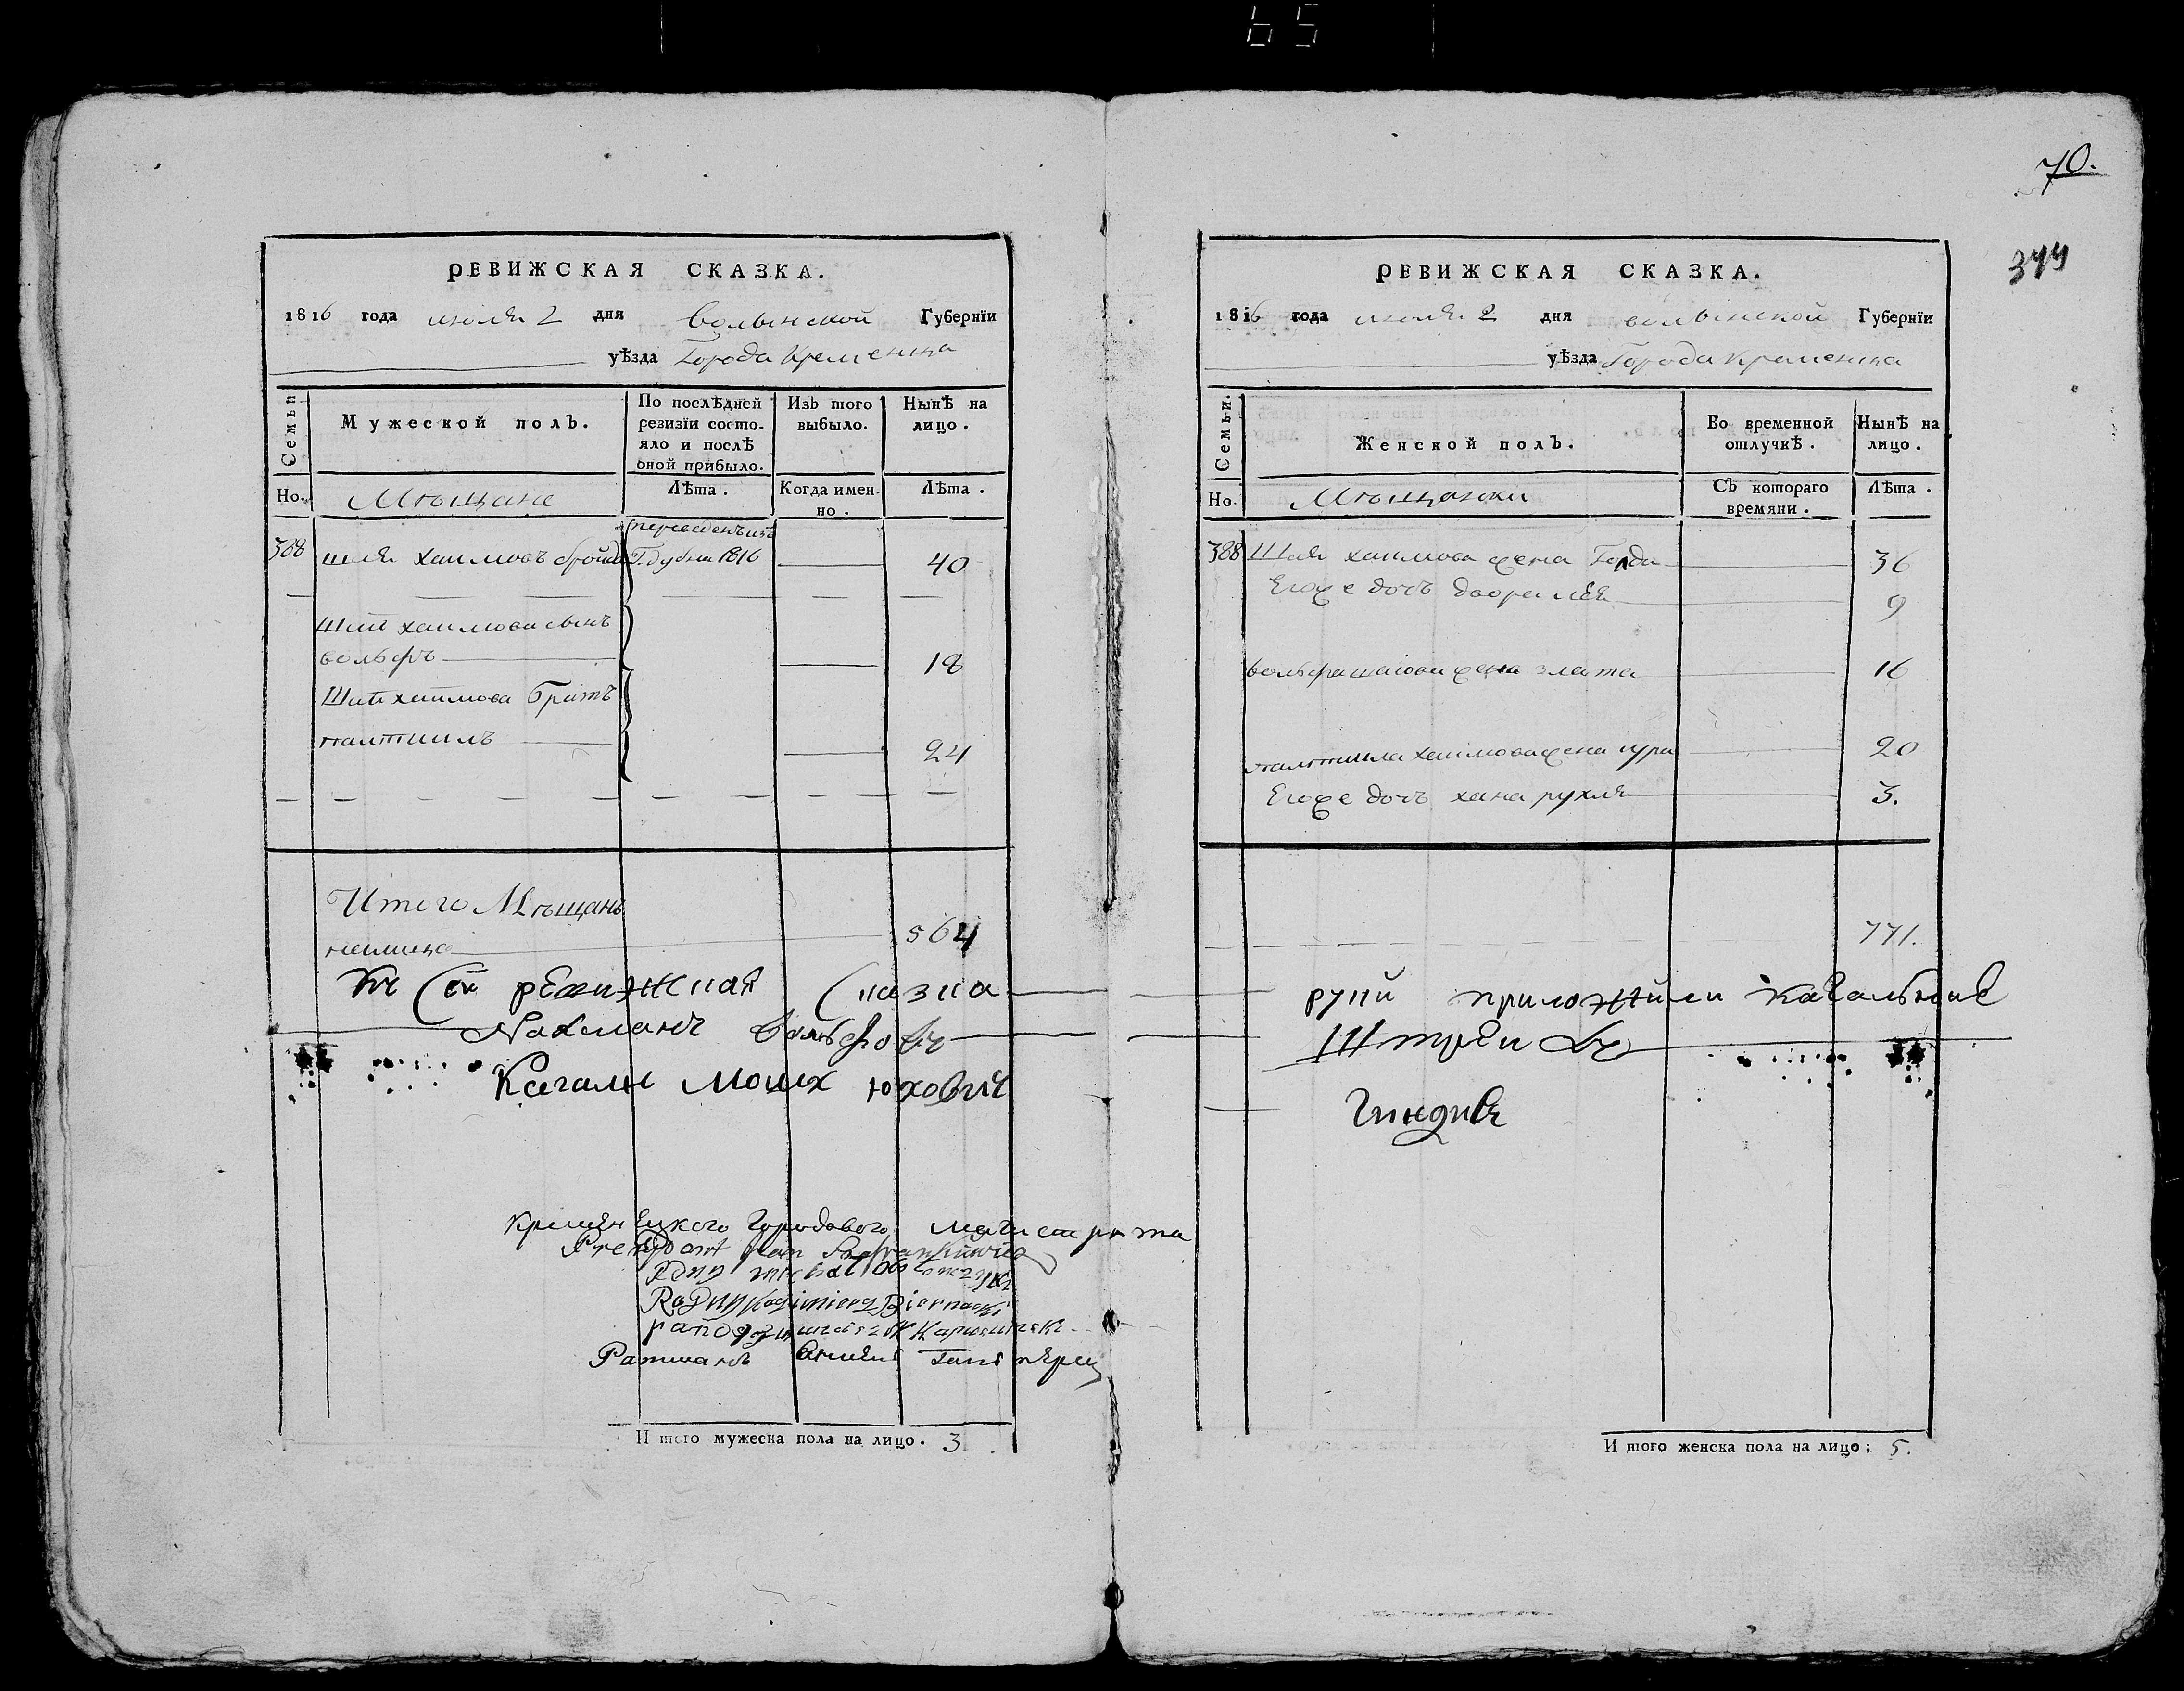 65
70.
344
РЕВИЖСКАЯ СКАЗКА.
1816 года июля 2 дня волынской Губернїи
уѣзда Города Кременца
Семьи
Мужеской полъ.
По послѣдней ревизїи состояло и послѣ оной прибыло.
Изъ того выбыло.
Нынѣ на лицо.
Но. Мѣщане Лѣта. Когда именно. Лѣта.
переведенъ изъ
388 шля хаимовъ Г. Дубна 1816 40
Шлї хаимова сынъ
вольфъ 18
Шлї хаимова братъ
24
Итого Мѣщанъ
налица 564
Къ сей ревижская сказка
Нахманъ вольфовъ
Кагалн мошх юхович
Кременецкого Городового магистрата
Prezydent Jan
Radny Kazimierz Biernacki
Ратманъ
И того мужеска пола на лицо. 3
РЕВИЖСКАЯ СКАЗКА.
1816 года июля 2 дня волынской Губернїи
уѣзда Города Кременца
Семьи.
Женской полъ.
Во временной отлучкѣ.
Нынѣ на лицо.
Но. Мѣщанки Съ котораго времяни. Лѣта.
388 Шля хаимова жена Голда 36
Егоже дочь двора лея 9
вольфа жена злата 16
хаимова жена сура 20
Егоже дочь хана рухля 3.
771.
руки приложили кагальние
И того женска пола на лицо; 5.